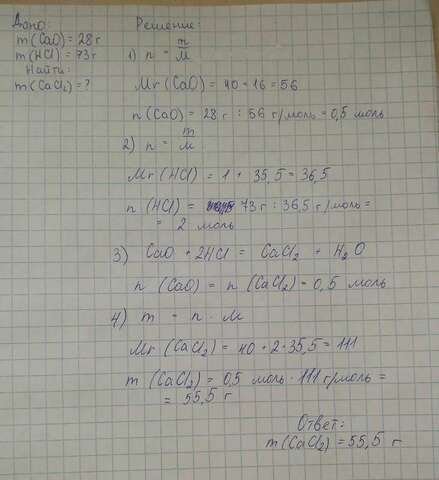 Дано:
m(CaO) = 28 г
m(HCl) = 73 г
Найти:
m(CaCl₂) = ?
Решение:
1) n = m/M
Mr(CaO) = 40 + 16 = 56
n(CaO) = 28 г : 56 г/моль = 0,5 моль
2) n = m/M
Mr(HCl) = 1 + 35,5 = 36,5
n (HCl) = 73 г : 36,5 г/моль =
= 2 моль
3) CaO + 2HCl = CaCl₂ + H₂O
n (CaO) = n (CaCl₂) = 0,5 моль
4) m = n · M
Mr (CaCl₂) = 40 + 2 · 35,5 = 111
m (CaCl₂) = 0,5 моль · 111 г/моль =
= 55,5 г
Ответ:
m(CaCl₂) = 55,5 г